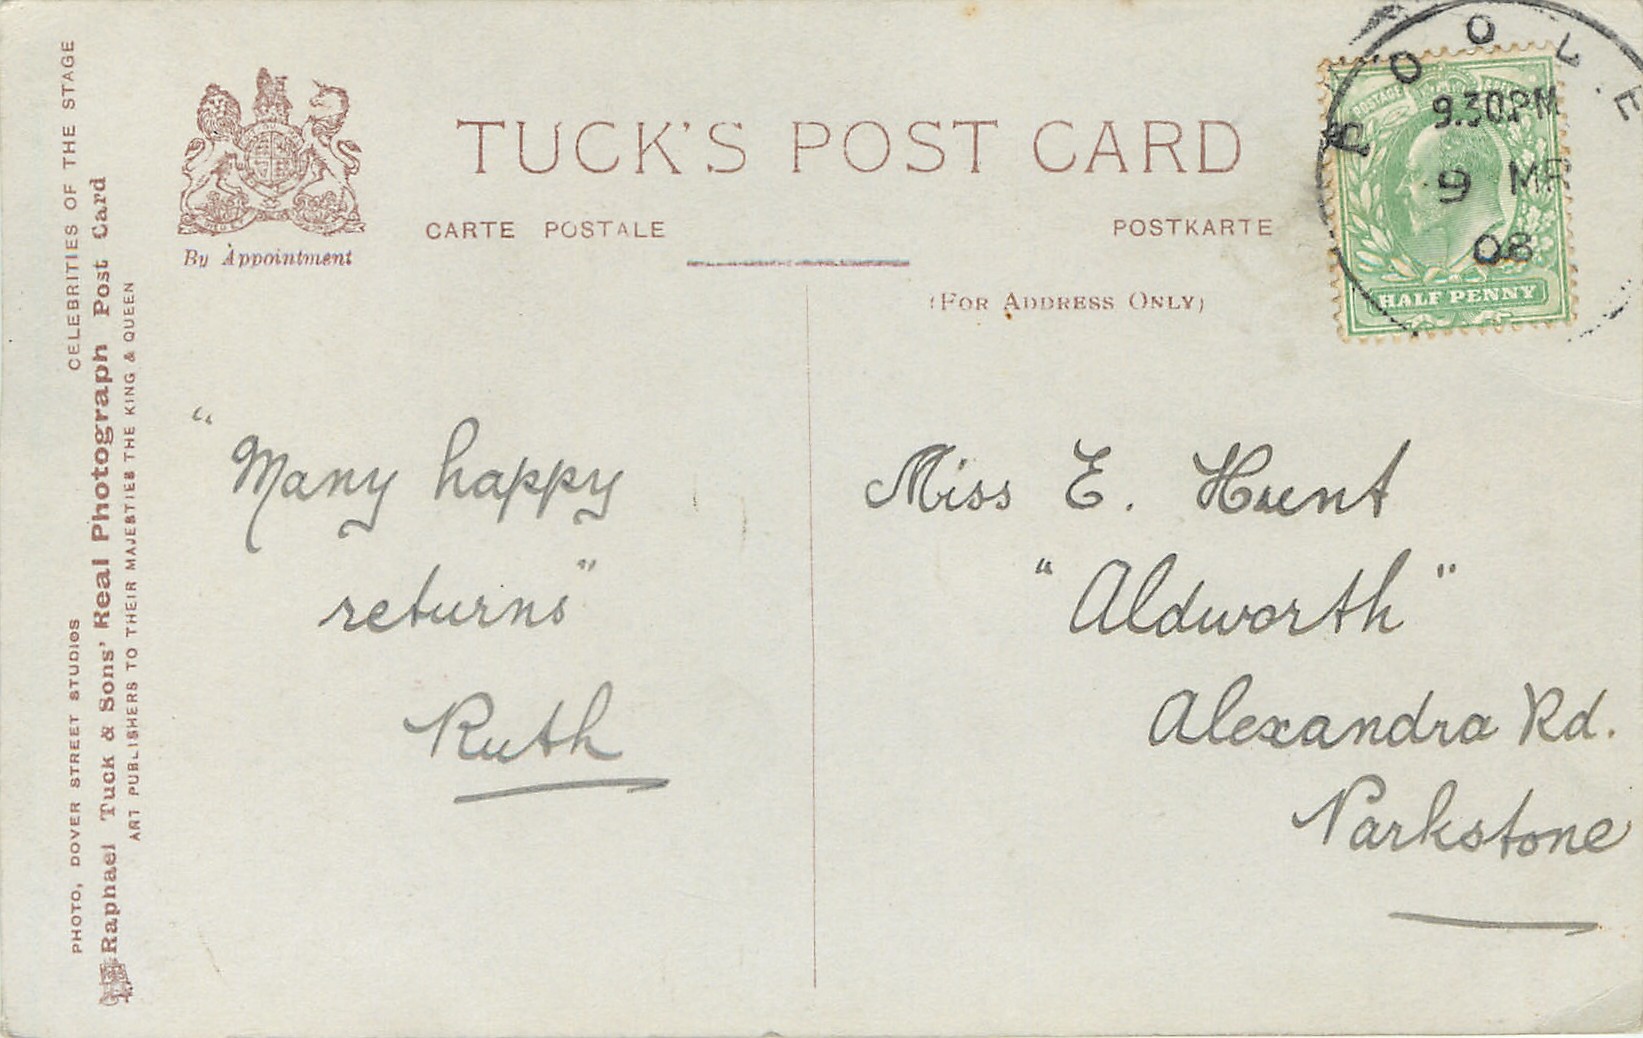 CELEBRITIES OF THE STAGE
PHOTO, DOVER STREET STUDIOS
Raphael Tuck & Sons' Real Photograph Post Card
ART PUBLISHERS TO THEIR MAJESTIES THE KING & QUEEN
By Appointment
TUCK'S POST CARD
CARTE POSTALE
POSTKARTE
(FOR ADDRESS ONLY)
POOLE
9.30PM
9 MR
08
POSTAGE
HALF PENNY
"Many happy
returns"
Ruth
Miss E. Hunt
"Aldworth"
Alexandra Rd.
Parkstone